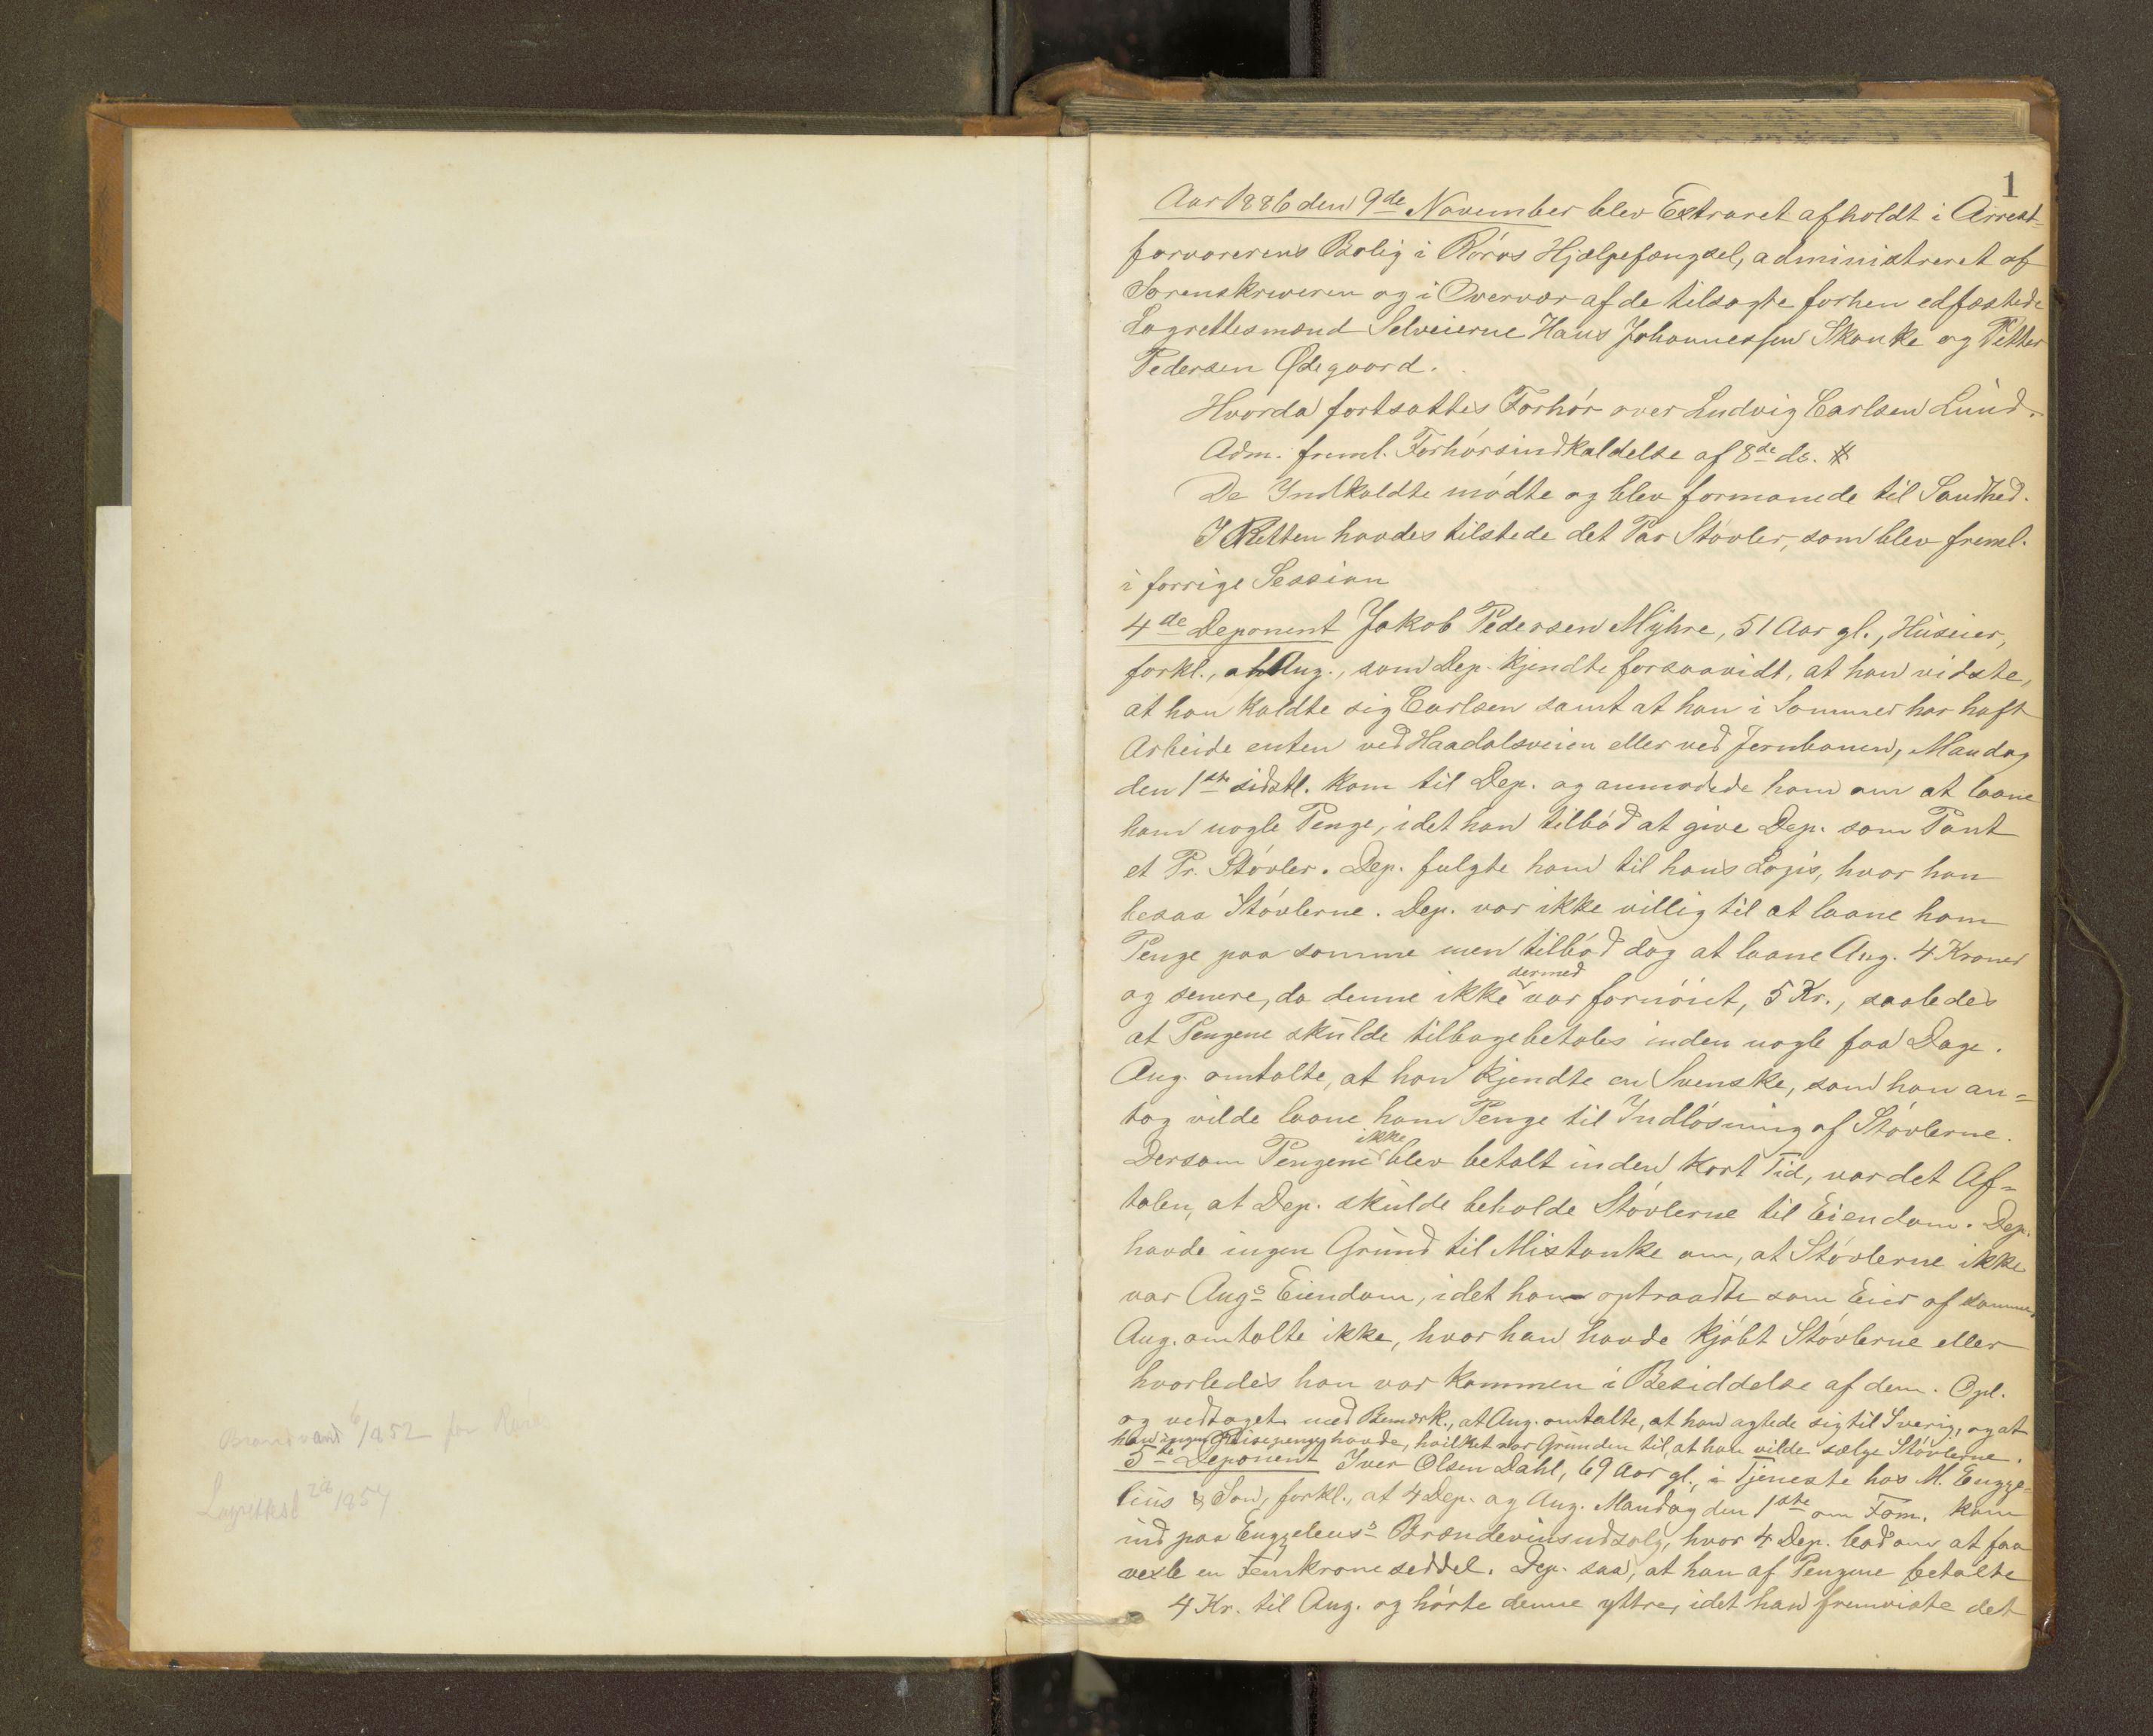 Brandvand 6/1852 for Røros
Lagrettesl 26/1854
1
Aar 1886 den 9de November blev Extraret afholdt i Arrest-
forvarerens Bolig i Rørøs Hjælpefængsel, administreret af
Sorenskriveren og i Overvær af de tilsagte forhen edfæstede
Lagrettesmænd Selveierne Hans Johannessen Skanke og Petter
Pedersen Ødegaard.
Hvorda fortsattes Forhør over Ludvig Carlsen Lund.
Adm. freml. Forhørsindkaldelse af 8de ds. #
De Indkaldte mødte og blev formanede til Sandhed.
I Retten havdes tilstede det Par Støvler, som blev freml.
i forrige Session
4de Deponent Jakob Pedersen Myhre, 51 Aar gl., Huseier,
forkl., at Ang., som Dep. kjendte forsaavidt, at han vidste,
at han kaldte sig Carlsen samt at han i Sommer har haft
Arbeide enten ved Haadalsveien eller ved Jernbanen, Mandag
den 1ste sidstl. kom til Dep. og anmodede ham om at laane
ham nogle Penge, idet han tilbød at give Dep. som Pant
et Pr. Støvler. Dep. fulgte ham til hans Logis, hvor han
besaa Støvlerne. Dep. var ikke villig til at laane ham
Penge paa samme men tilbød dog at laane Ang. 4 Kroner
og senere, da denne ikke dermed var fornøiet, 5 Kr., saaledes
at Pengene skulde tilbagebetales inden nogle faa Dage.
Ang. omtalte, at han kjendte en Svenske, som han an-
tog vilde laane ham Penge til Indløsning af Støvlerne.
Dersom Pengene ikke blev betalt inden kort Tid, var det Af-
talen, at Dep. skulde beholde Støvlerne til Eiendom. Dep.
havde ingen Grund til Mistanke om, at Støvlerne ikke
var Angs Eiendom, idet han optraadte som Eier af samme.
Ang. omtalte ikke, hvor han havde kjøbt Støvlerne eller
hvorledes han var kommen i Besiddelse af dem. Opl.
og vedtaget med Bemærk., at Ang. omtalte, at han agtede sig til Sverig, og at
han ingen Reisepenge havde, hvilket var Grunden til, at han vilde sælge Støvlerne.
5te Deponent Iver Olsen Dahl, 69 Aar gl., i Tjeneste hos M. Engze-
lius & Søn, forkl., at 4 Dep. og Ang. Mandag den 1ste om Fom. kom
ind paa Engzelius's Brændevinsudsalg, hvor 4 Dep. bad om at faa
vexle en Femkroneseddel. Dep. saa, at han af Pengene betalte
4 Kr. til Ang. og hørte denne yttre, idet han fremviste det